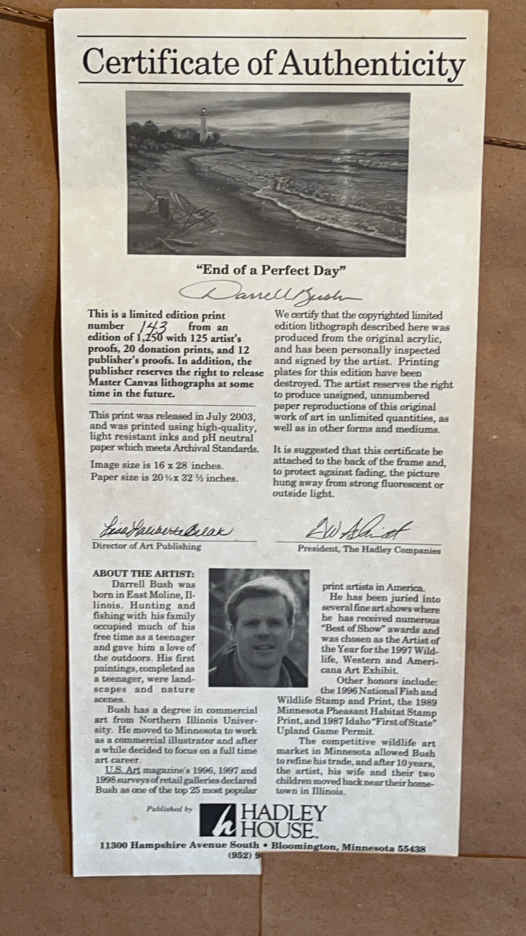 Certificate of Authenticity
"End of a Perfect Day"
Darrell Bush
This is a limited edition print
number 143 from an
edition of 1,250 with 125 artist's
proofs, 20 donation prints, and 12
publisher's proofs. In addition, the
publisher reserves the right to release
Master Canvas lithographs at some
time in the future.
This print was released in July 2003,
and was printed using high-quality,
light resistant inks and pH neutral
paper which meets Archival Standards.
Image size is 16 x 28 inches.
Paper size is 20 ½ x 32 ½ inches.
We certify that the copyrighted limited
edition lithograph described here was
produced from the original acrylic,
and has been personally inspected
and signed by the artist. Printing
plates for this edition have been
destroyed. The artist reserves the right
to produce unsigned, unnumbered
paper reproductions of this original
work of art in unlimited quantities, as
well as in other forms and mediums.
It is suggested that this certificate be
attached to the back of the frame and,
to protect against fading, the picture
hung away from strong fluorescent or
outside light.
Director of Art Publishing
President, The Hadley Companies
ABOUT THE ARTIST:
Darrell Bush was
born in East Moline, Il-
linois. Hunting and
fishing with his family
occupied much of his
free time as a teenager
and gave him a love of
the outdoors. His first
paintings, completed as
a teenager, were land-
scapes and nature
scenes.
Bush has a degree in commercial
art from Northern Illinois Univer-
sity. He moved to Minnesota to work
as a commercial illustrator and after
a while decided to focus on a full time
art career.
U.S. Art magazine's 1996, 1997 and
1998 surveys of retail galleries declared
Bush as one of the top 25 most popular
print artists in America.
He has been juried into
several fine art shows where
he has received numerous
"Best of Show" awards and
was chosen as the Artist of
the Year for the 1997 Wild-
life, Western and Ameri-
cana Art Exhibit.
Other honors include:
the 1996 National Fish and
Wildlife Stamp and Print, the 1989
Minnesota Pheasant Habitat Stamp
Print, and 1987 Idaho "First of State"
Upland Game Permit.
The competitive wildlife art
market in Minnesota allowed Bush
to refine his trade, and after 10 years,
the artist, his wife and their two
children moved back near their home-
town in Illinois.
Published by
h HADLEY
HOUSE™
11300 Hampshire Avenue South • Bloomington, Minnesota 55438
(952) 9